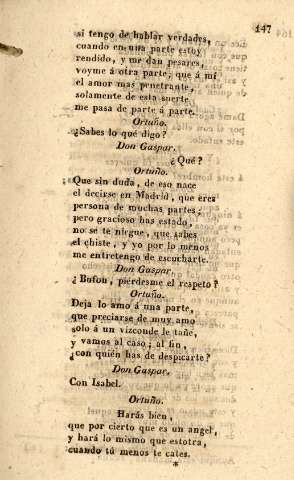 147
si tengo de hablar verdades,
cuando en una parte estoy
rendido, y me dan pesares,
voyme á otra parte; que á mí
el amor mas penetrante,
solamente de esta suerte
me pasa de parte á parte.
Ortuño.
¿Sabes lo qué digo?
Don Gaspar.
¿Qué?
Ortuño.
Que sin duda, de eso nace
el decirse en Madrid, que eres
persona de muchas partes;
pero gracioso has estado,
no se te niegue, que sabes
el chiste, y yo por lo menos
me entretengo de escucharte.
Don Gaspar.
¿Bufon, piérdesme el respeto?
Ortuño.
Deja lo amo á una parte,
que preciarse de muy amo
solo á un vizconde le tañe,
y vamos al caso; al fin,
¿con quién has de despicarte?
Don Gaspar.
Con Isabel.
Ortuño.
Harás bien,
que por cierto que es un angel,
y hará lo mismo que estotra,
cuando tú menos te cates.
*